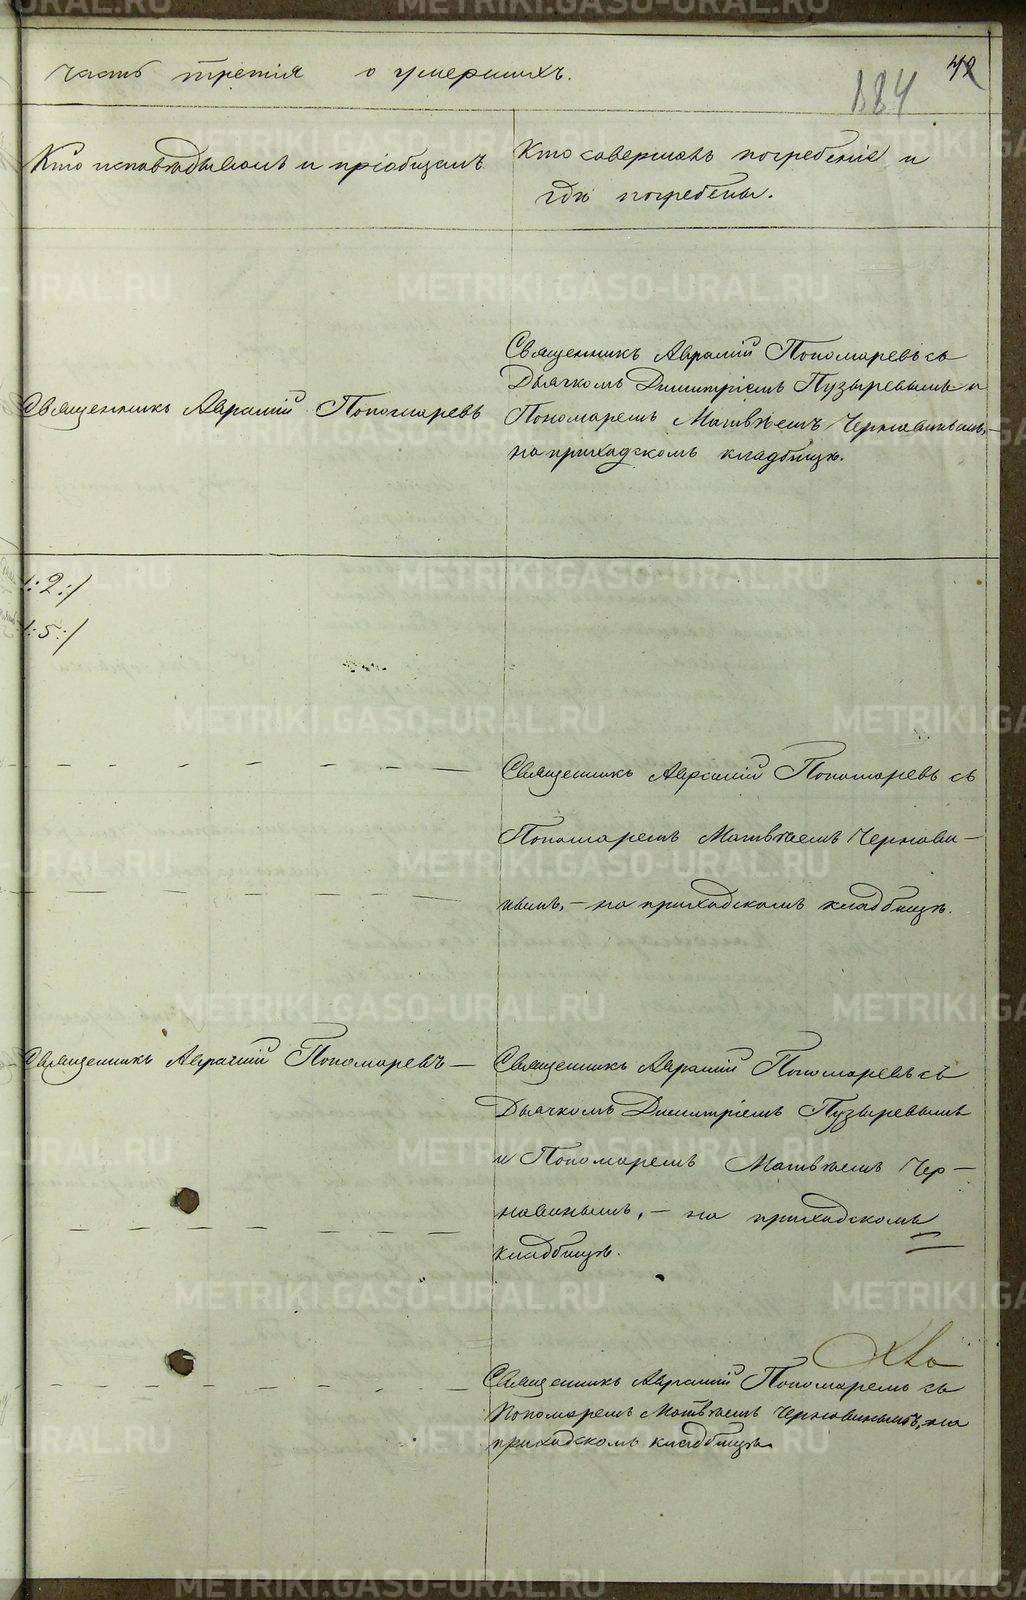 часть третія о умершихъ.
42
184
Кто исповѣдывалъ и пріобщалъ
Кто совершалъ погребеніе и
гдѣ погребены.
Священникъ Аврамій Пономаревъ
Священникъ Аврамій Пономаревъ съ
Дьячкомъ Димитріемъ Пузыревымъ и
Пономаремъ Матвѣемъ Чернавинымъ,-
на приходскомъ кладбищѣ.
/:2:/
/:5:/
Священникъ Аврамій Пономаревъ съ
Пономаремъ Матвѣемъ Чернави-
нымъ,- на приходскомъ кладбищѣ.
Священникъ Аврамій Пономаревъ
Священникъ Аврамій Пономаревъ съ
Дьячкомъ Димитріемъ Пузыревымъ
и Пономаремъ Матвѣемъ Чер-
навинымъ,- на приходскомъ
кладбищѣ.
Священникъ Аврамій Пономаревъ съ
Пономаремъ Матвѣемъ Чернавинымъ, на
приходскомъ кладбищѣ
METRIKI.GASO-URAL.RU